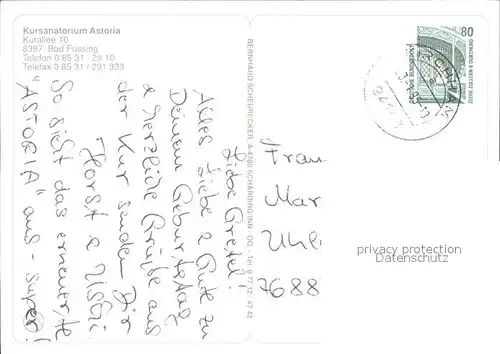 Kursanatorium Astoria
Kurallee 10
8397 Bad Füssing
Telefon 0 85 31 / 29 10
Telefax 0 85 31 / 291 333
Liebe Gretel!
Alles Liebe & Gute zu
Deinem Geburtstag
& herzliche Grüße aus
der Kur senden Dir
Horst &
So sieht das erneuerte
"ASTORIA" aus - super!
BERNHARD SCHEURECKER, A-4780 SCHÄRDING/INN · OÖ. · Tel. 0 77 12 47 42
80
DEUTSCHE BUNDESPOST
Frau
Mar
Uhl
7688
privacy protection
Datenschutz